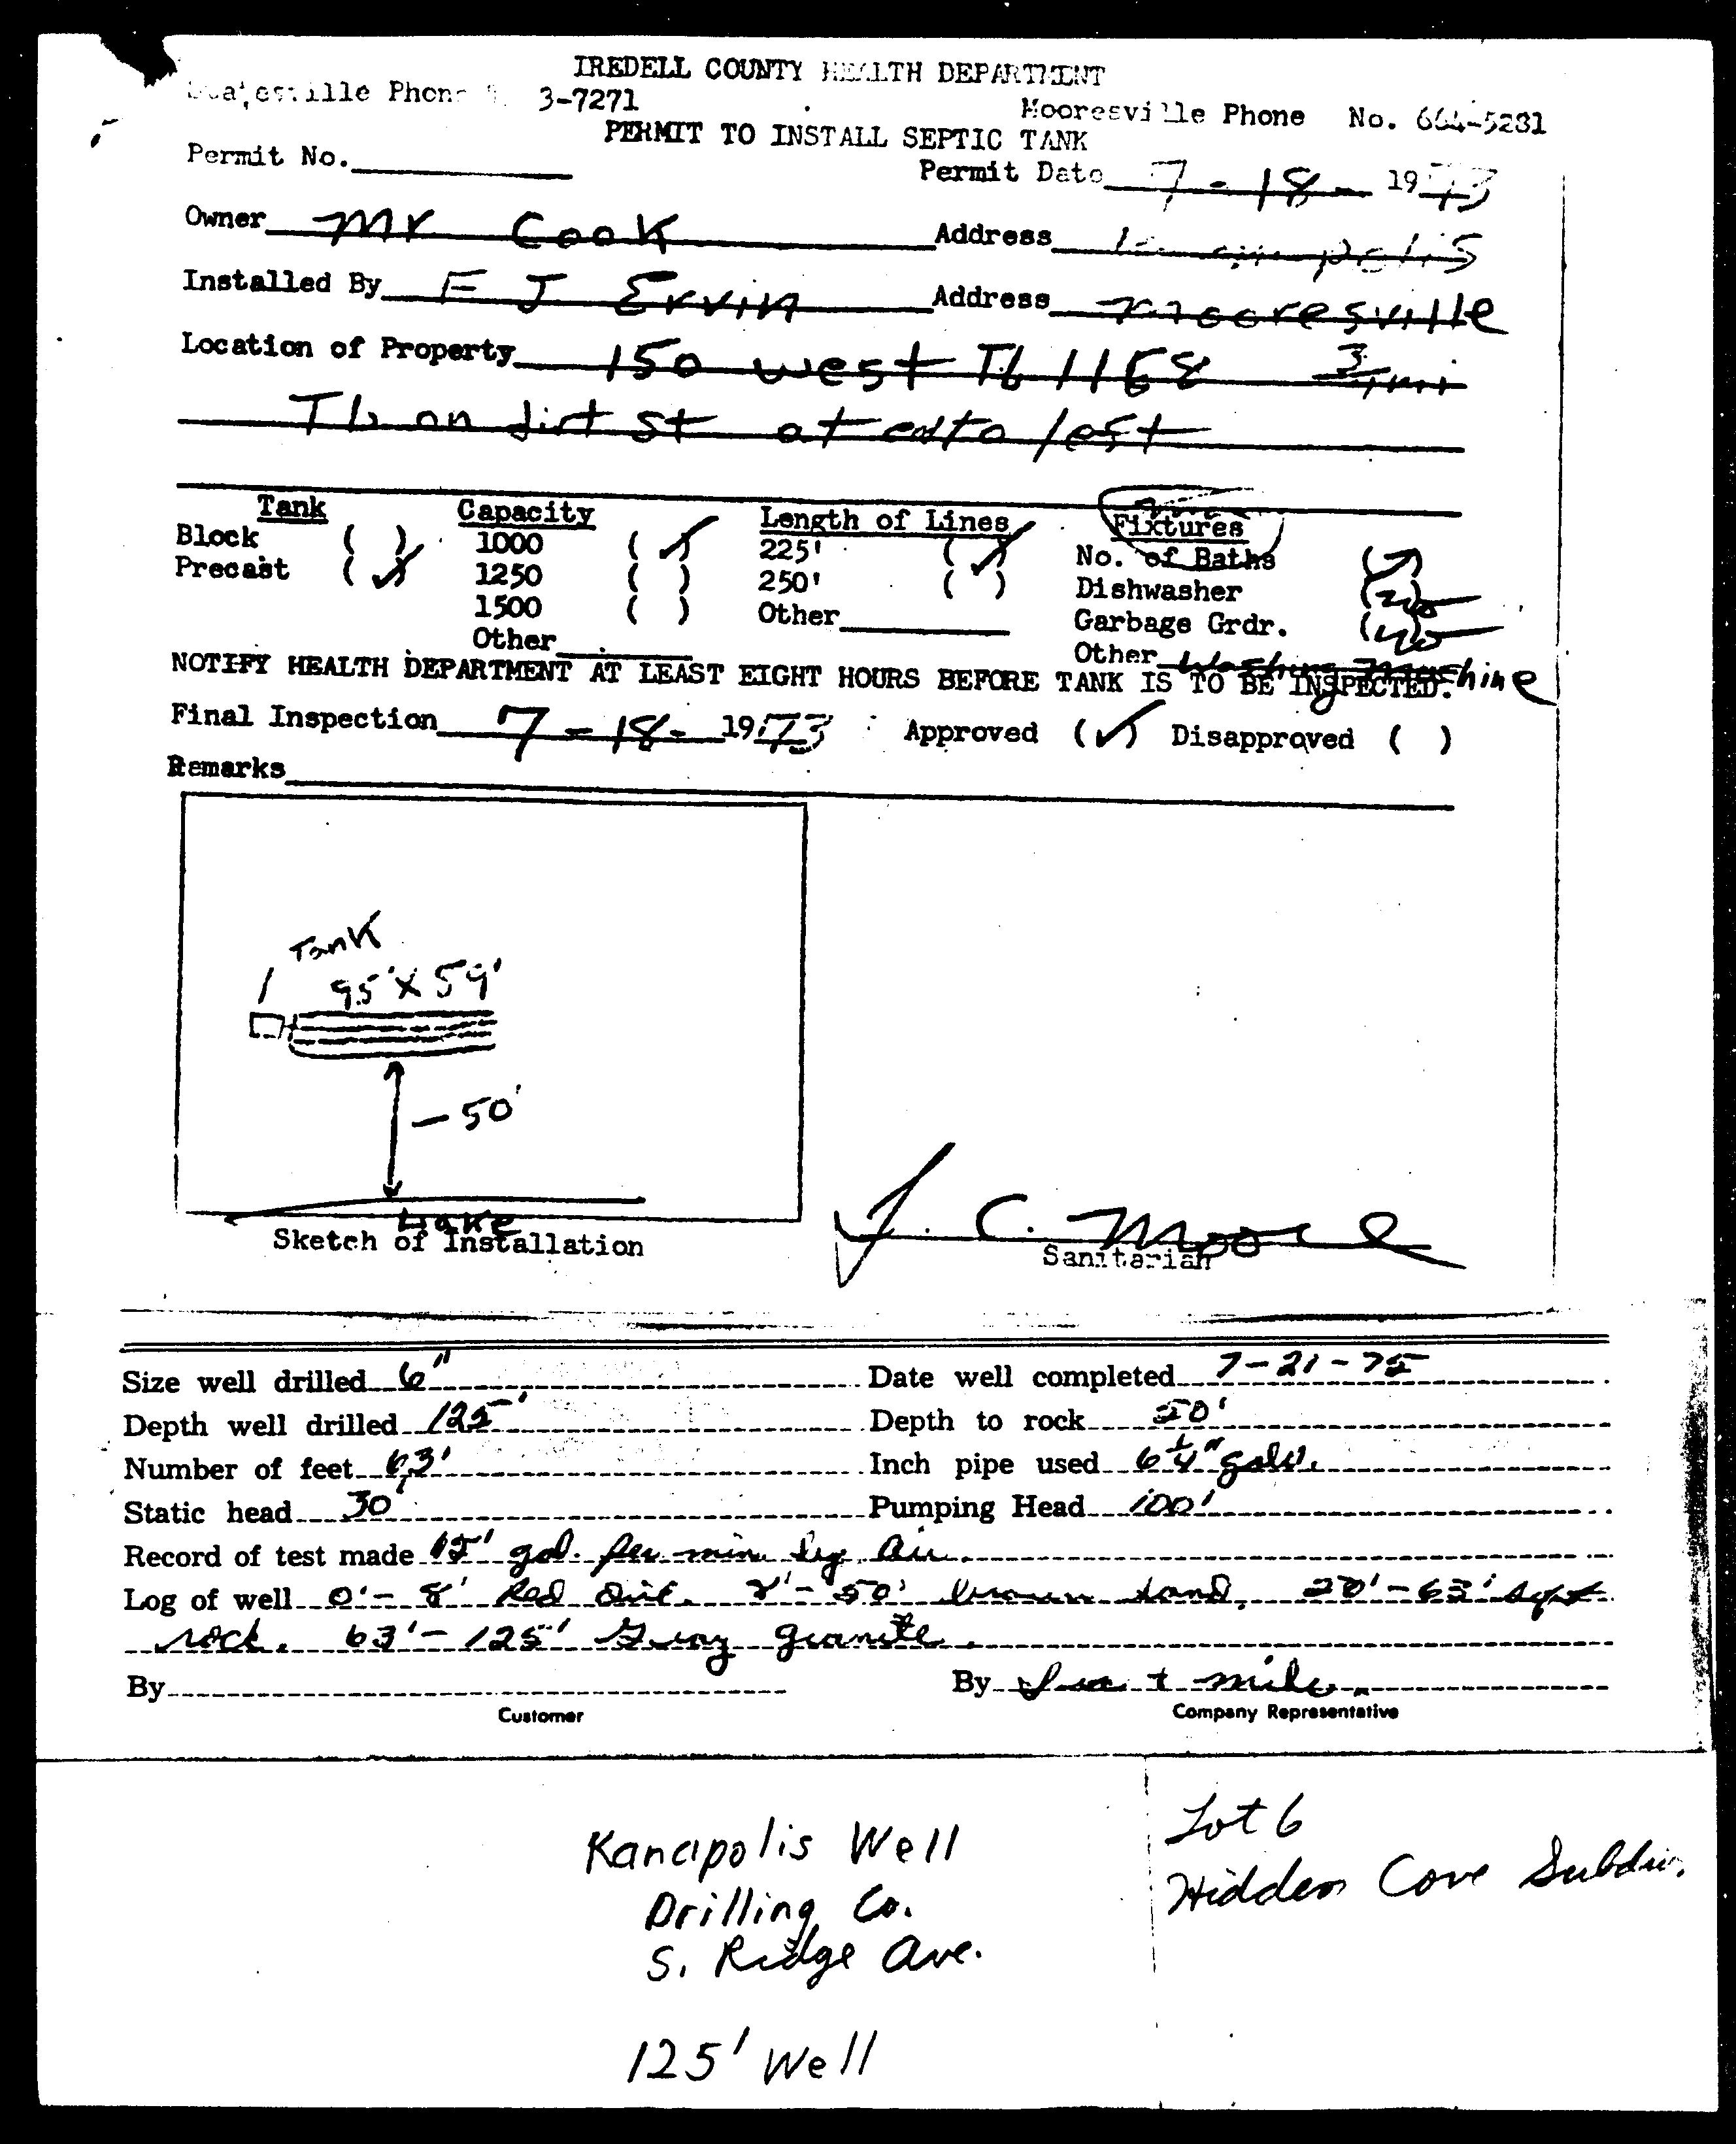 IREDELL COUNTY HEALTH DEPARTMENT
Statesville Phone 3-7271 Mooresville Phone No. 664-5281
PERMIT TO INSTALL SEPTIC TANK
Permit No. Permit Date 7-18- 1973
Owner Mr Cook Address
Installed By F J Ervin Address Mooresville
Location of Property 150 west TL 1168 3/ mi
TL on dirt st at
Tank Capacity Length of Lines Fixtures
Block ( ) 1000 (✓) 225' (✓) No. of Baths
Precast (✓) 1250 ( ) 250' ( ) Dishwasher (no)
1500 ( ) Other Garbage Grdr. (no)
Other Other Washing Machine
NOTIFY HEALTH DEPARTMENT AT LEAST EIGHT HOURS BEFORE TANK IS TO BE INSPECTED.
Final Inspection 7-18- 1973 Approved (✓) Disapproved ( )
Remarks
Tank
95' X 59'
- 50'
Lake
Sketch of Installation
J. C. Moore
Sanitarian
Size well drilled 6" Date well completed 7-21-75
Depth well drilled 125' Depth to rock 50'
Number of feet 63' Inch pipe used 6 1/4" galv.
Static head 30' Pumping Head 100'
Record of test made 15' gal. per min. by air.
Log of well 0'-8' Red Dirt. 8'-50' brown sand. 50'-63' soft
rock. 63'-125' Gray granite.
By By
Customer Company Representative
Kanapolis Well
Drilling Co.
S. Ridge Ave.
125' Well
Lot 6
Hidden Cove Subdiv.